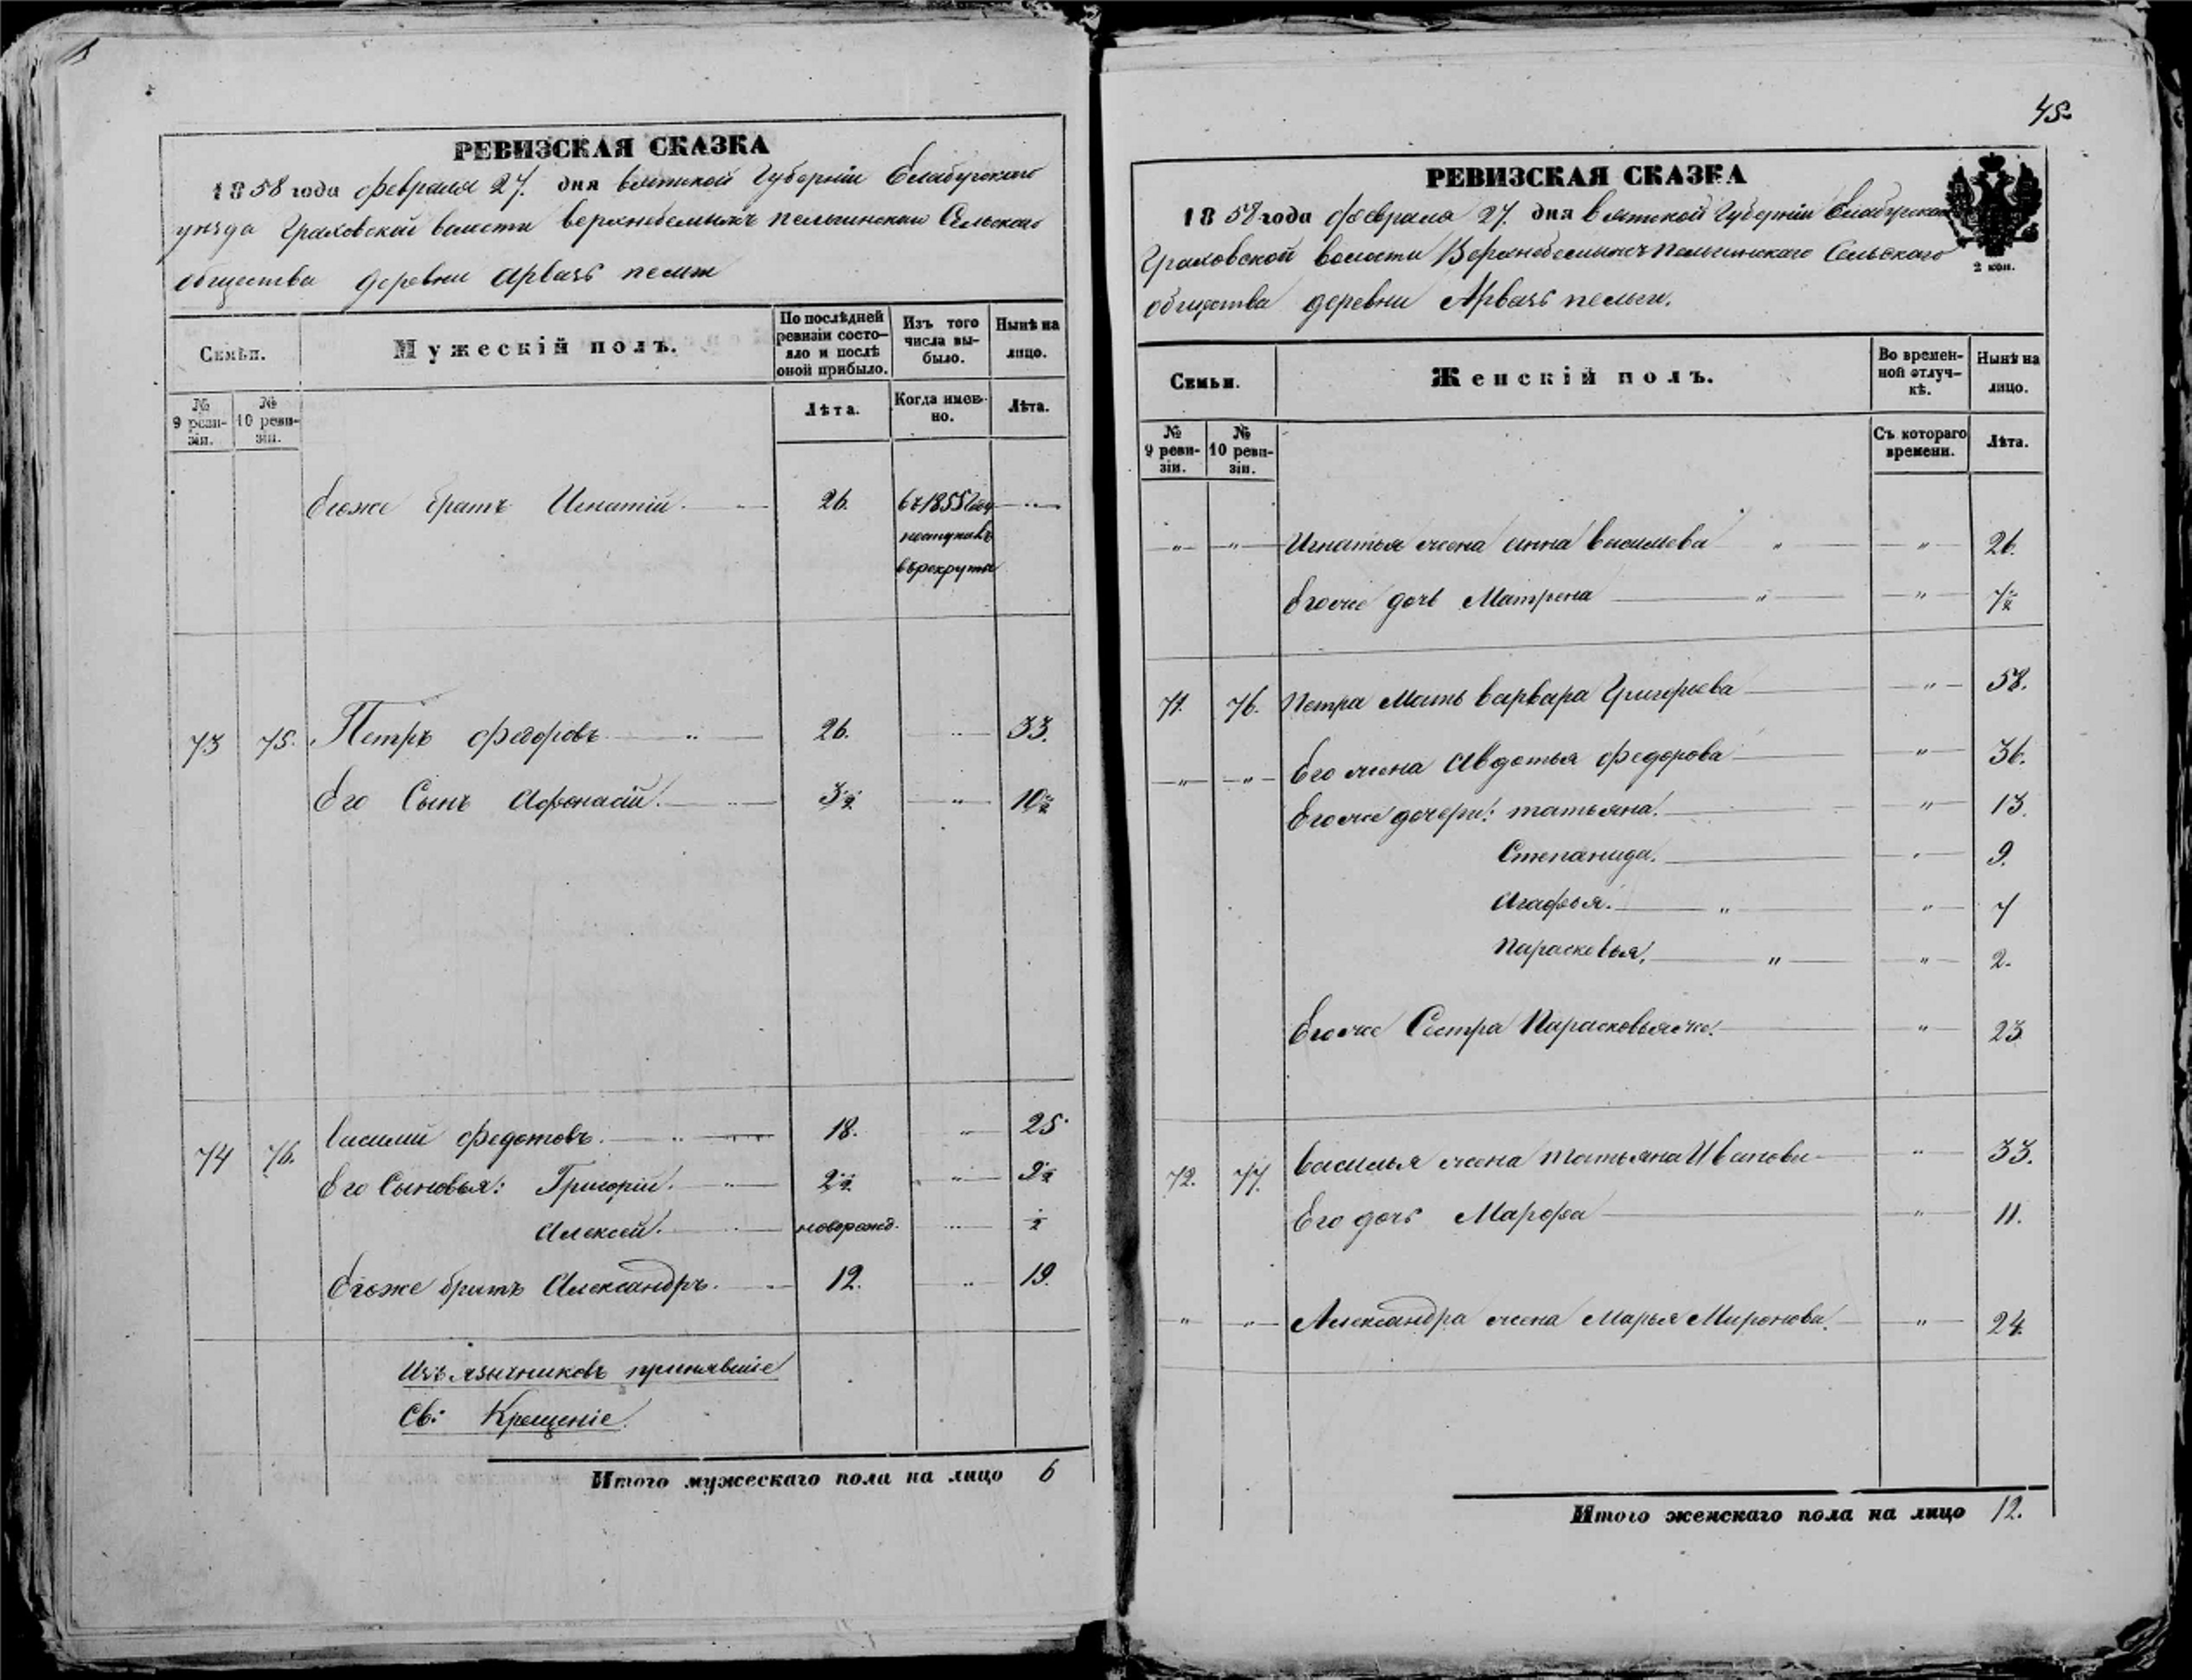 РЕВИЗСКАЯ СКАЗКА
1858 года февраля 27. дня вятской Губерніи Елабугскаго
уѣзда Граховской волости верхнебемыжъ пельгинскаго Сельскаго
общества деревни Арвазь пельги
Семьи.
Мужескій полъ.
По послѣдней ревизіи состояло и послѣ оной прибыло.
Изъ того числа выбыло.
Нынѣ на лицо.
№ 9 ревизіи.
№ 10 ревизіи.
Лѣта.
Когда именно.
Лѣта.
Егоже братъ Игнатій. 26. въ 1855 году
поступилъ
в рекруты
73 75. Петръ Федоровъ 26. " 33.
Его Сынъ Афонасій. 3½ " 10½
74 76. Василій Федотовъ. 18. " 25.
Его Сыновья: Григорій. 2½ " 9½
Алексей. новорожд. " ½
Егоже братъ Александръ. 12. " 19.
Изъ язычниковъ принявшіе
Св: Крещеніе.
Итого мужескаго пола на лицо 6
45.
РЕВИЗСКАЯ СКАЗКА
1858 года февраля 27. дня вятской Губерніи Елабугскаго
Граховской волости Верхнебемыжъ пельгинскаго Сельскаго
2 коп.
общества деревни Арвазь пельги.
Семьи.
Женскій полъ.
Во временной отлучкѣ.
Нынѣ на лицо.
№ 9 ревизіи.
№ 10 ревизіи.
Съ котораго времени.
Лѣта.
" " Игнатья жена анна васильева " " 26.
Егоже дочь Матрена " " 7½
71. 76. Петра Мать варвара Григорьева " 58.
" " Его жена Авдотья Федорова " 36.
Егоже дочери: татьяна. " 13.
Степанида. " 9.
Агафья. " " 7
Парасковья. " " 2.
Егоже Сестра Парасковья же. " 23
72. 77. Василья жена татьяна Иванова " 33.
Его дочь Марфа " 11.
" " Александра жена Марья Миронова. " 24.
Итого женскаго пола на лицо 12.